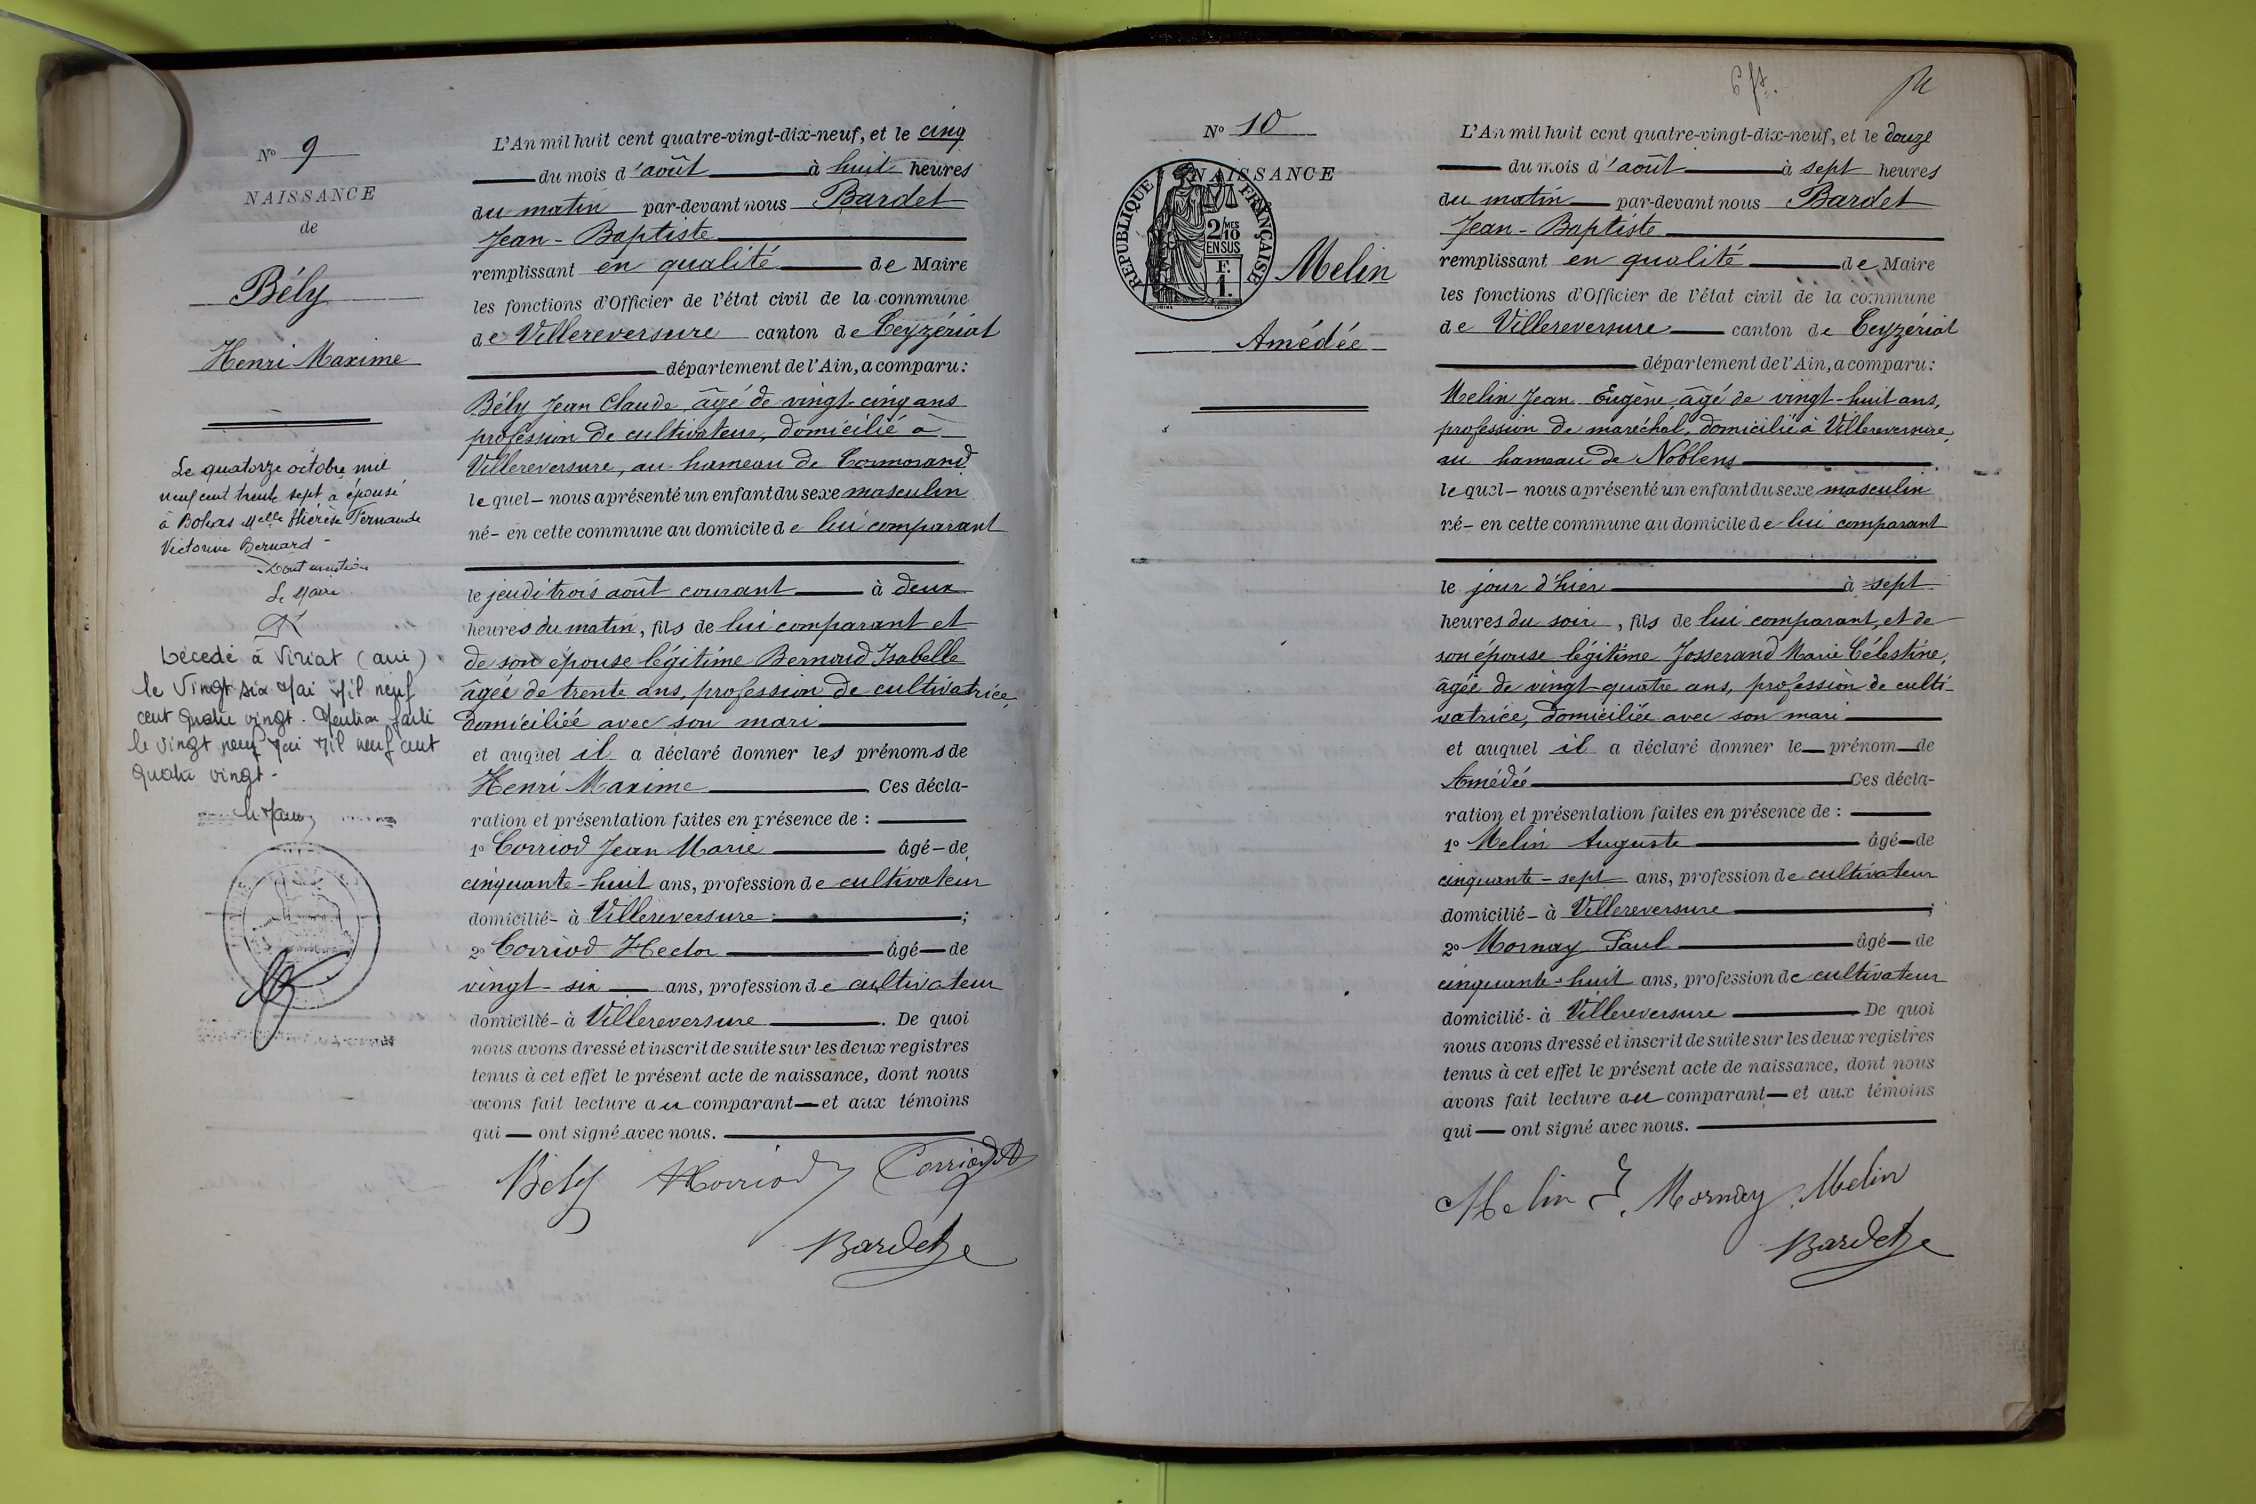 N° 9
NAISSANCE
de
Bély
Henri Maxime
Le quatorze octobre mil
neuf cent trente sept a épousé
à Bohas Melle Thérèse Fernande
Victorine Bernard -
Dont mention
Le Maire
Décédé à Viriat (Ain)
le vingt six Mai Mil neuf
cent quatre vingt. Mention faite
le vingt neuf Mai Mil neuf cent
quatre vingt -
Le Maire
L'An mil huit cent quatre-vingt-dix-neuf, et le cinq
du mois d'août à huit heures
du matin par-devant nous Bardet
Jean-Baptiste
remplissant en qualité de Maire
les fonctions d'Officier de l'état civil de la commune
de Villereversure canton de Ceyzériat
département de l'Ain, a comparu:
Bély Jean Claude, âgé de vingt-cinq ans
profession de cultivateur, domicilié à
Villereversure, au hameau de Cormorand
lequel - nous a présenté un enfant du sexe masculin
né - en cette commune au domicile de lui comparant
le jeudi trois août courant à deux
heures du matin, fils de lui comparant et
de son épouse légitime Bernoud Isabelle
âgée de trente ans, profession de cultivatrice,
domiciliée avec son mari
et auquel il a déclaré donner les prénoms de
Henri Maxime Ces décla-
ration et présentation faites en présence de :
1° Corriod Jean Marie âgé - de
cinquante-huit ans, profession de cultivateur
domicilié - à Villereversure ;
2° Corriod Hector âgé - de
vingt-six ans, profession de cultivateur
domicilié - à Villereversure . De quoi
nous avons dressé et inscrit de suite sur les deux registres
tenus à cet effet le présent acte de naissance, dont nous
avons fait lecture au comparant - et aux témoins
qui - ont signé avec nous.
Bély HCorriod Corriod
Bardet
6 ft.
N° 10
NAISSANCE
RÉPUBLIQUE FRANÇAISE
2/MES
10
EN SUS
F.
1.
Melin
Amédée
L'An mil huit cent quatre-vingt-dix-neuf, et le douze
du mois d'août à sept heures
du matin par-devant nous Bardet
Jean-Baptiste
remplissant en qualité de Maire
les fonctions d'Officier de l'état civil de la commune
de Villereversure canton de Ceyzériat
département de l'Ain, a comparu:
Melin Jean Eugène, âgé de vingt-huit ans,
profession de maréchal, domicilié à Villereversure,
au hameau de Noblens
lequel - nous a présenté un enfant du sexe masculin
né - en cette commune au domicile de lui comparant
le jour d'hier à sept
heures du soir, fils de lui comparant, et de
son épouse légitime Josserand Marie Célestine,
âgée de vingt-quatre ans, profession de culti-
vatrice, domiciliée avec son mari
et auquel il a déclaré donner le prénom de
Amédée Ces décla-
ration et présentation faites en présence de :
1° Melin Auguste âgé - de
cinquante-sept ans, profession de cultivateur
domicilié - à Villereversure ;
2° Mornay Paul âgé - de
cinquante-huit ans, profession de cultivateur
domicilié - à Villereversure De quoi
nous avons dressé et inscrit de suite sur les deux registres
tenus à cet effet le présent acte de naissance, dont nous
avons fait lecture au comparant - et aux témoins
qui - ont signé avec nous.
Melin E. Mornay Melin
Bardet